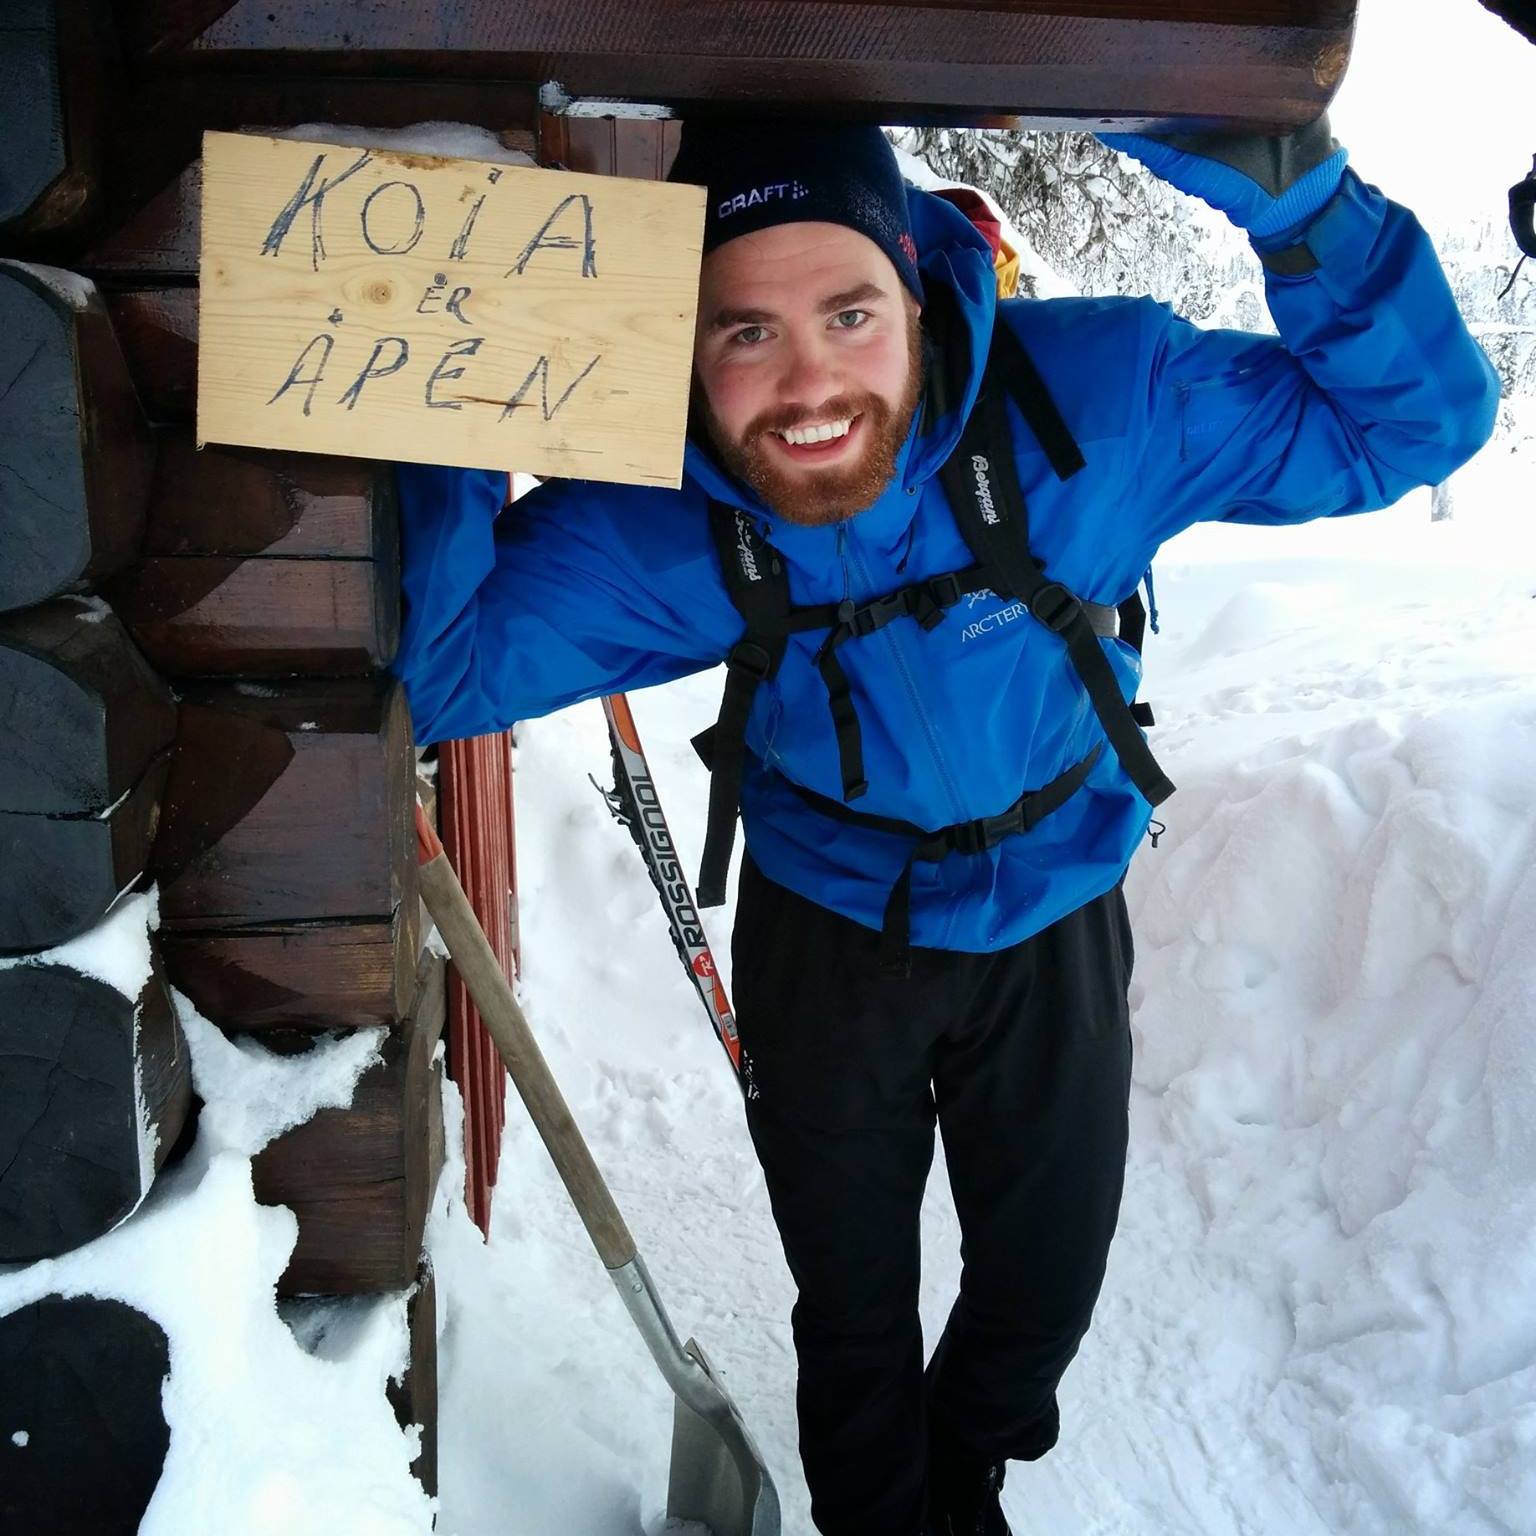 KOIA
ER
ÅPEN
CRAFT
Bergans
Bergans
ARC'TERY
ROSSIGNOL